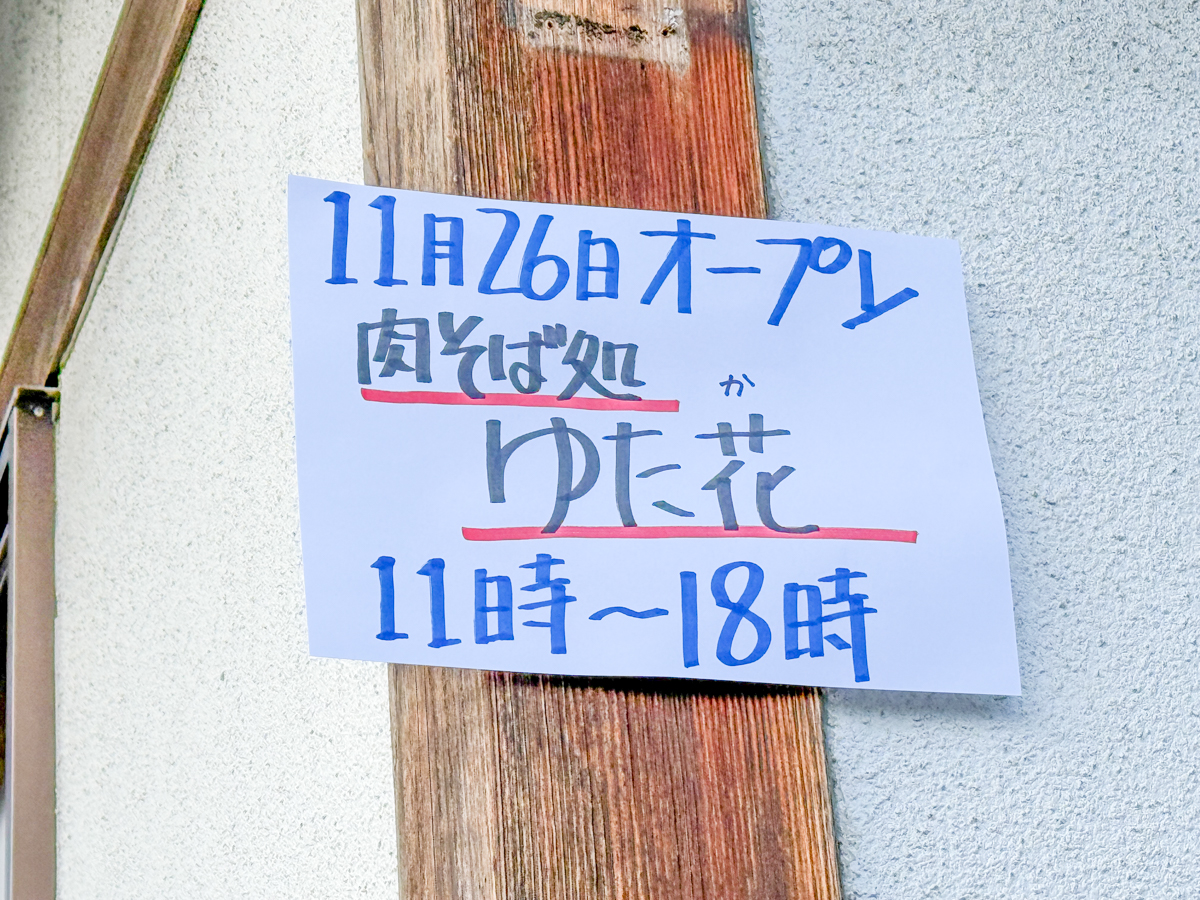 11月26日オープン
肉そば処
か
ゆた花
11時～18時